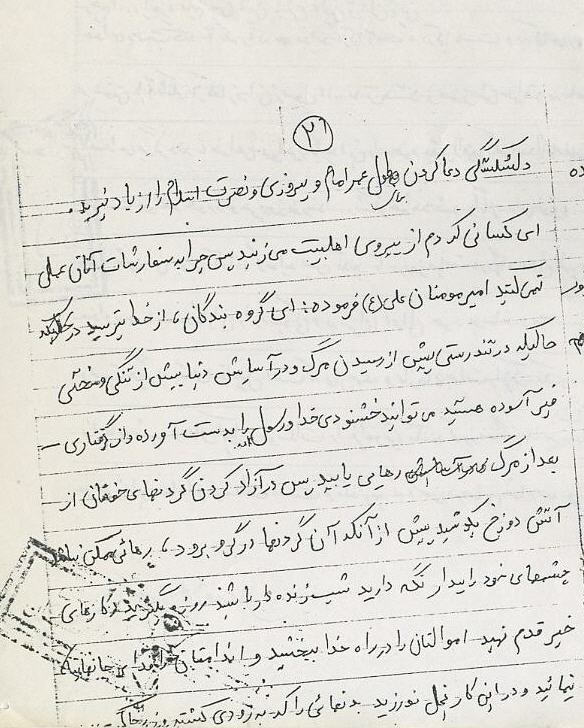 ۲۱
دلشکستگی دعا کردن برای طول عمر امام و پیروزی و نصرت اسلام را از یاد نبرید.
ای کسانی که دم از پیروی اهلبیت می‌زنید پس چرا به سفارشات آنان عملی
نمی‌کنید امیر مومنان علی (ع) فرموده: ای گروه بندگان، از خدا بترسید در
حالیکه در تندرستی پیش از رسیدن مرگ و در آسایش دنیا پیش از تنگی و سختی
آسوده هستید می‌توانید خشنودی خدا و رسول را بدست آورده و از گرفتاری
بعد از مرگ رهایی یابید پس در آزاد کردن گردنهای خودتان از
آتش دوزخ بکوشید پیش از آنکه آن گردنها در گرو برود، رهائی ممکن نباشد
چشمهای خود را بیدار نگه دارید شب زنده دار باشید روزه بگیرید در کارهای
خیر قدم نهید اموالتان را در راه خدا ببخشید و اندامتان
نمائید و در این کار بخل نورزید بدنهائی را که به زودی